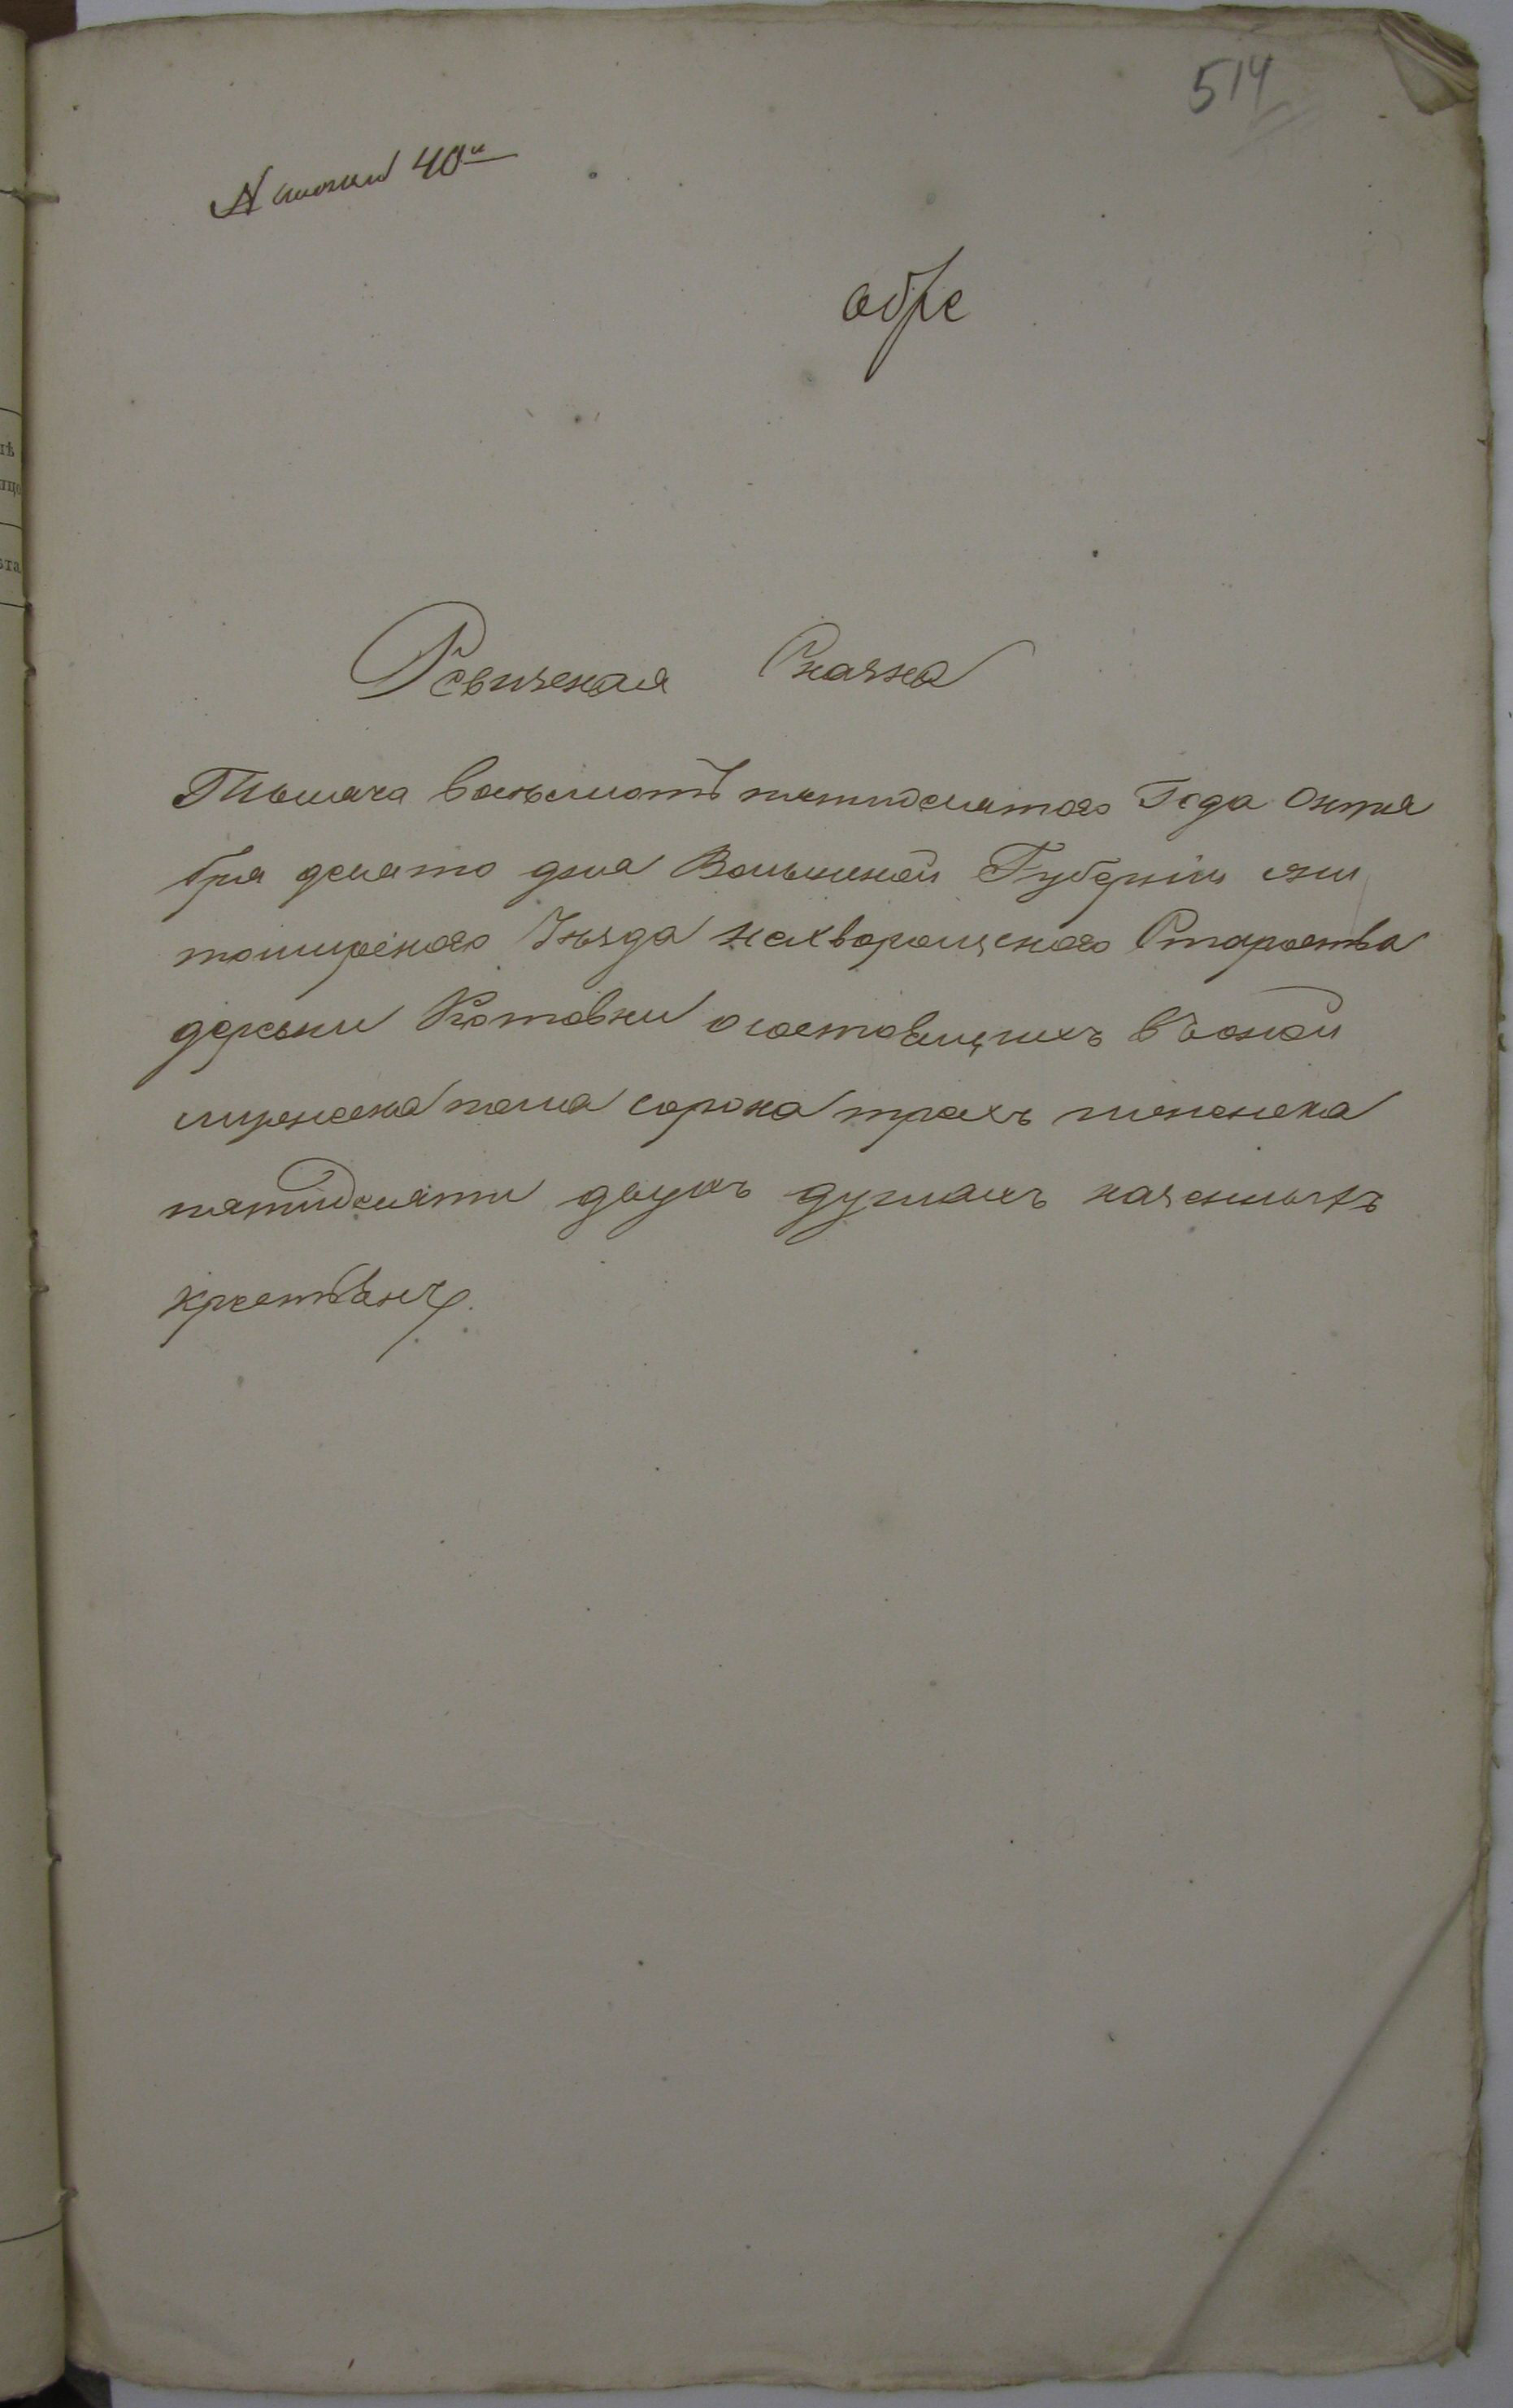 514
N 40й
Ревизская Сказка
Тысяча восемьсотъ пятидесятого Года Октя
бря десято дня Волынской Губернии Жи
томирского Уезда Нехворощского Староства
деревни Котовки о состоящихъ в оной
мужеска пола сорока трехъ женска
пятидесяти двухъ душахъ казенныхъ
крестьянъ.